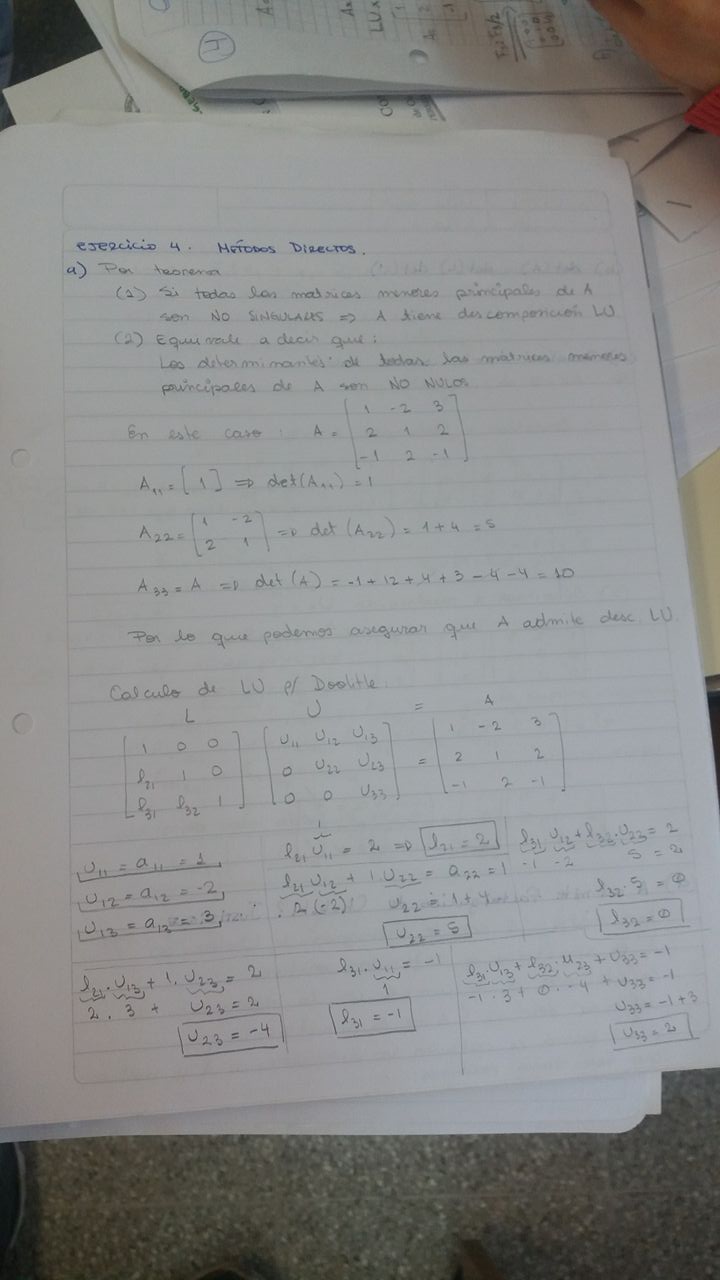 4
ejercicio 4. Métodos Directos.
a) Por teorema
(1) Si todas las matrices menores principales de A
son NO SINGULARES => A tiene descomposición LU
(2) Equivale a decir que:
Los determinantes de todas las matrices menores
principales de A son NO NULOS
En este caso: A = [1 -2 3
2 1 2
-1 2 -1]
A11 = [1] => det(A11) = 1
A22 = [1 -2
2 1] => det(A22) = 1+4 = 5
A33 = A => det(A) = -1+12+4+3-4-4 = 10
Por lo que podemos asegurar que A admite desc. LU.
Calculo de LU p/ Doolitle.
L U = A
[1 0 0] [U11 U12 U13] = [1 -2 3]
[l21 1 0] [0 U22 U23] [2 1 2]
[l31 l32 1] [0 0 U33] [-1 2 -1]
U11 = a11 = 1
U12 = a12 = -2
U13 = a13 = 3
1
l21 U11 = 2 => l21 = 2
l21 U12 + 1. U22 = a22 = 1
2 (-2)
U22 = 5
l31 U12 + l32. U23 = 2
-1 -2 5 = 2
l32 5 = 0
l32 = 0
l21. U13 + 1. U23 = 2
2. 3 + U23 = 2
U23 = -4
l31. U11 = -1
1
l31 = -1
l31. U13 + l32. U23 + U33 = -1
-1. 3 + 0. -4 + U33 = -1
U33 = -1+3
U33 = 2